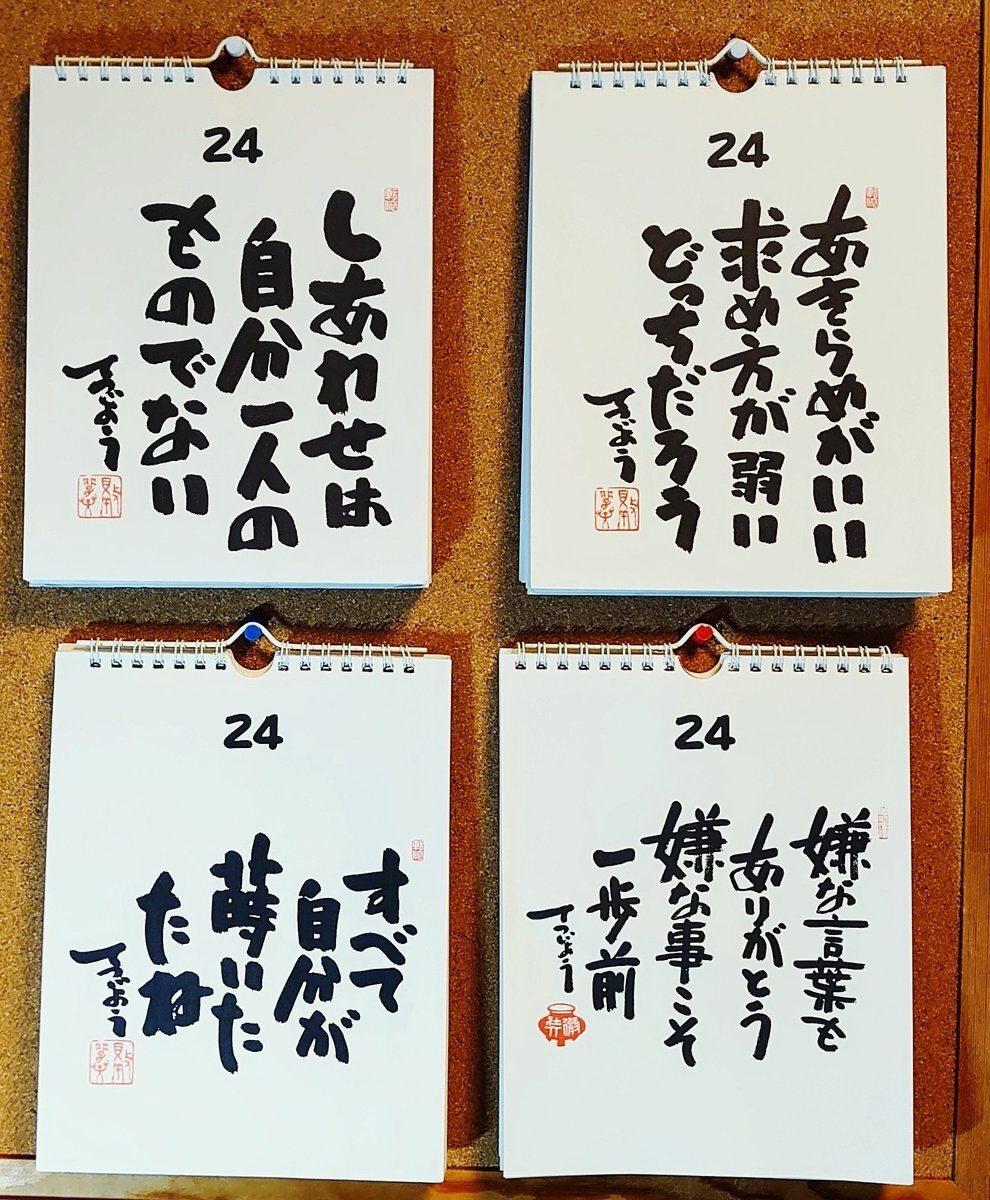 24
しあわせは
自分一人の
ものでない
24
あきらめがいい
求め方が弱い
どっちだろう
24
すべて
自分が
蒔いた
たね
24
嫌な言葉も
ありがとう
嫌な事こそ
一歩前